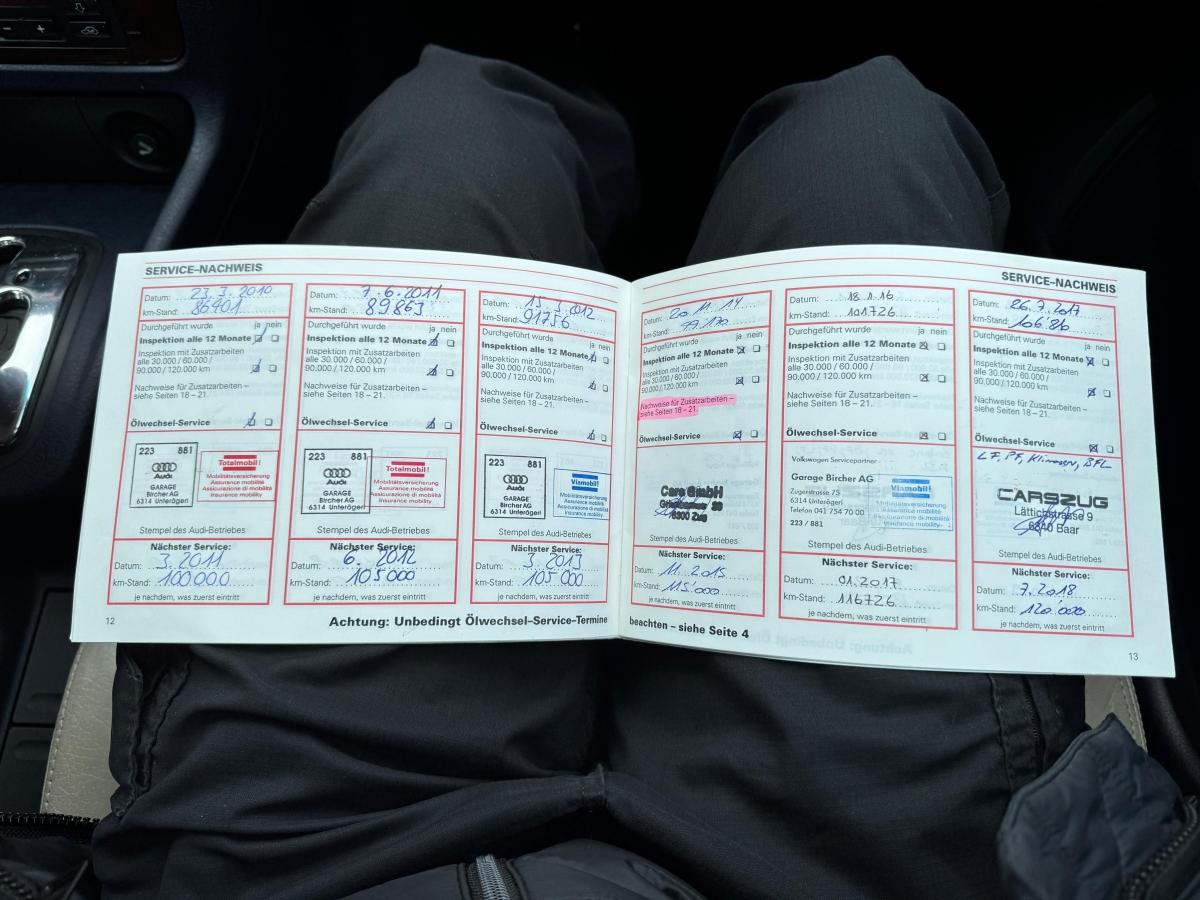 SERVICE–NACHWEIS
Datum: 23.3.2010
km-Stand: 86401
Durchgeführt wurde ja nein
Inspektion alle 12 Monate
Inspektion mit Zusatzarbeiten
alle 30.000 / 60.000 /
90.000 / 120.000 km
Nachweise für Zusatzarbeiten –
siehe Seiten 18 – 21.
Ölwechsel-Service
223 881
Audi
GARAGE
Bircher AG
6314 Unterägeri
Totalmobil!
Mobilitätsversicherung
Assurance mobilité
Assicurazione di mobilità
Insurance mobility
Stempel des Audi-Betriebes
Nächster Service:
Datum: 3.2011
km-Stand: 100000
je nachdem, was zuerst eintritt
Datum: 7.6.2011
km-Stand: 89863
Durchgeführt wurde ja nein
Inspektion alle 12 Monate
Inspektion mit Zusatzarbeiten
alle 30.000 / 60.000 /
90.000 / 120.000 km
Nachweise für Zusatzarbeiten –
siehe Seiten 18 – 21.
Ölwechsel-Service
223 881
Audi
GARAGE
Bircher AG
6314 Unterägeri
Totalmobil!
Mobilitätsversicherung
Assurance mobilité
Assicurazione di mobilità
Insurance mobility
Stempel des Audi-Betriebes
Nächster Service:
Datum: 6.2012
km-Stand: 105000
je nachdem, was zuerst eintritt
Datum: 2012
km-Stand: 91756
Durchgeführt wurde ja nein
Inspektion alle 12 Monate
Inspektion mit Zusatzarbeiten
alle 30.000 / 60.000 /
90.000 / 120.000 km
Nachweise für Zusatzarbeiten –
siehe Seiten 18 – 21.
Ölwechsel-Service
223 881
Audi
GARAGE
Bircher AG
6314 Unterägeri
Viamobil!
Mobilitätsversicherung
Assurance mobilité
Assicurazione di mobilità
Insurance mobility
Stempel des Audi-Betriebes
Nächster Service:
Datum: 3.2013
km-Stand: 105 000
je nachdem, was zuerst eintritt
12
Achtung: Unbedingt Ölwechsel–Service-Termine
SERVICE–NACHWEIS
Datum: 20 11. 14
km-Stand: 99.170
Durchgeführt wurde ja nein
Inspektion alle 12 Monate
Inspektion mit Zusatzarbeiten
alle 30.000 / 60.000 /
90.000 / 120.000 km
Nachweise für Zusatzarbeiten –
siehe Seiten 18 – 21.
Ölwechsel-Service
Cars GmbH
6300 Zug
Stempel des Audi-Betriebes
Nächster Service:
Datum: 11.2015
km-Stand: 115.000
je nachdem, was zuerst eintritt
Datum: 18.1.16
km-Stand: 101726
Durchgeführt wurde ja nein
Inspektion alle 12 Monate
Inspektion mit Zusatzarbeiten
alle 30.000 / 60.000 /
90.000 / 120.000 km
Nachweise für Zusatzarbeiten –
siehe Seiten 18 – 21.
Ölwechsel-Service
Volkswagen Servicepartner
Garage Bircher AG
Zugerstrasse 75
6314 Unterägeri
Telefon 041 754 70 00
223 / 881
Viamobil!
Mobilitätsversicherung
Assurance mobilité
Assicurazione di mobilità
Insurance mobility
Stempel des Audi-Betriebes
Nächster Service:
Datum: 01.2017
km-Stand: 116726
je nachdem, was zuerst eintritt
Datum: 26.7.2017
km-Stand:
Durchgeführt wurde ja nein
Inspektion alle 12 Monate
Inspektion mit Zusatzarbeiten
alle 30.000 / 60.000 /
90.000 / 120.000 km
Nachweise für Zusatzarbeiten –
siehe Seiten 18 – 21.
Ölwechsel-Service
LF, PF, BFL
CARSZUG
Lättichstrasse 9
6340 Baar
Stempel des Audi-Betriebes
Nächster Service:
Datum: 7.2018
km-Stand: 120.000
je nachdem, was zuerst eintritt
beachten – siehe Seite 4
13